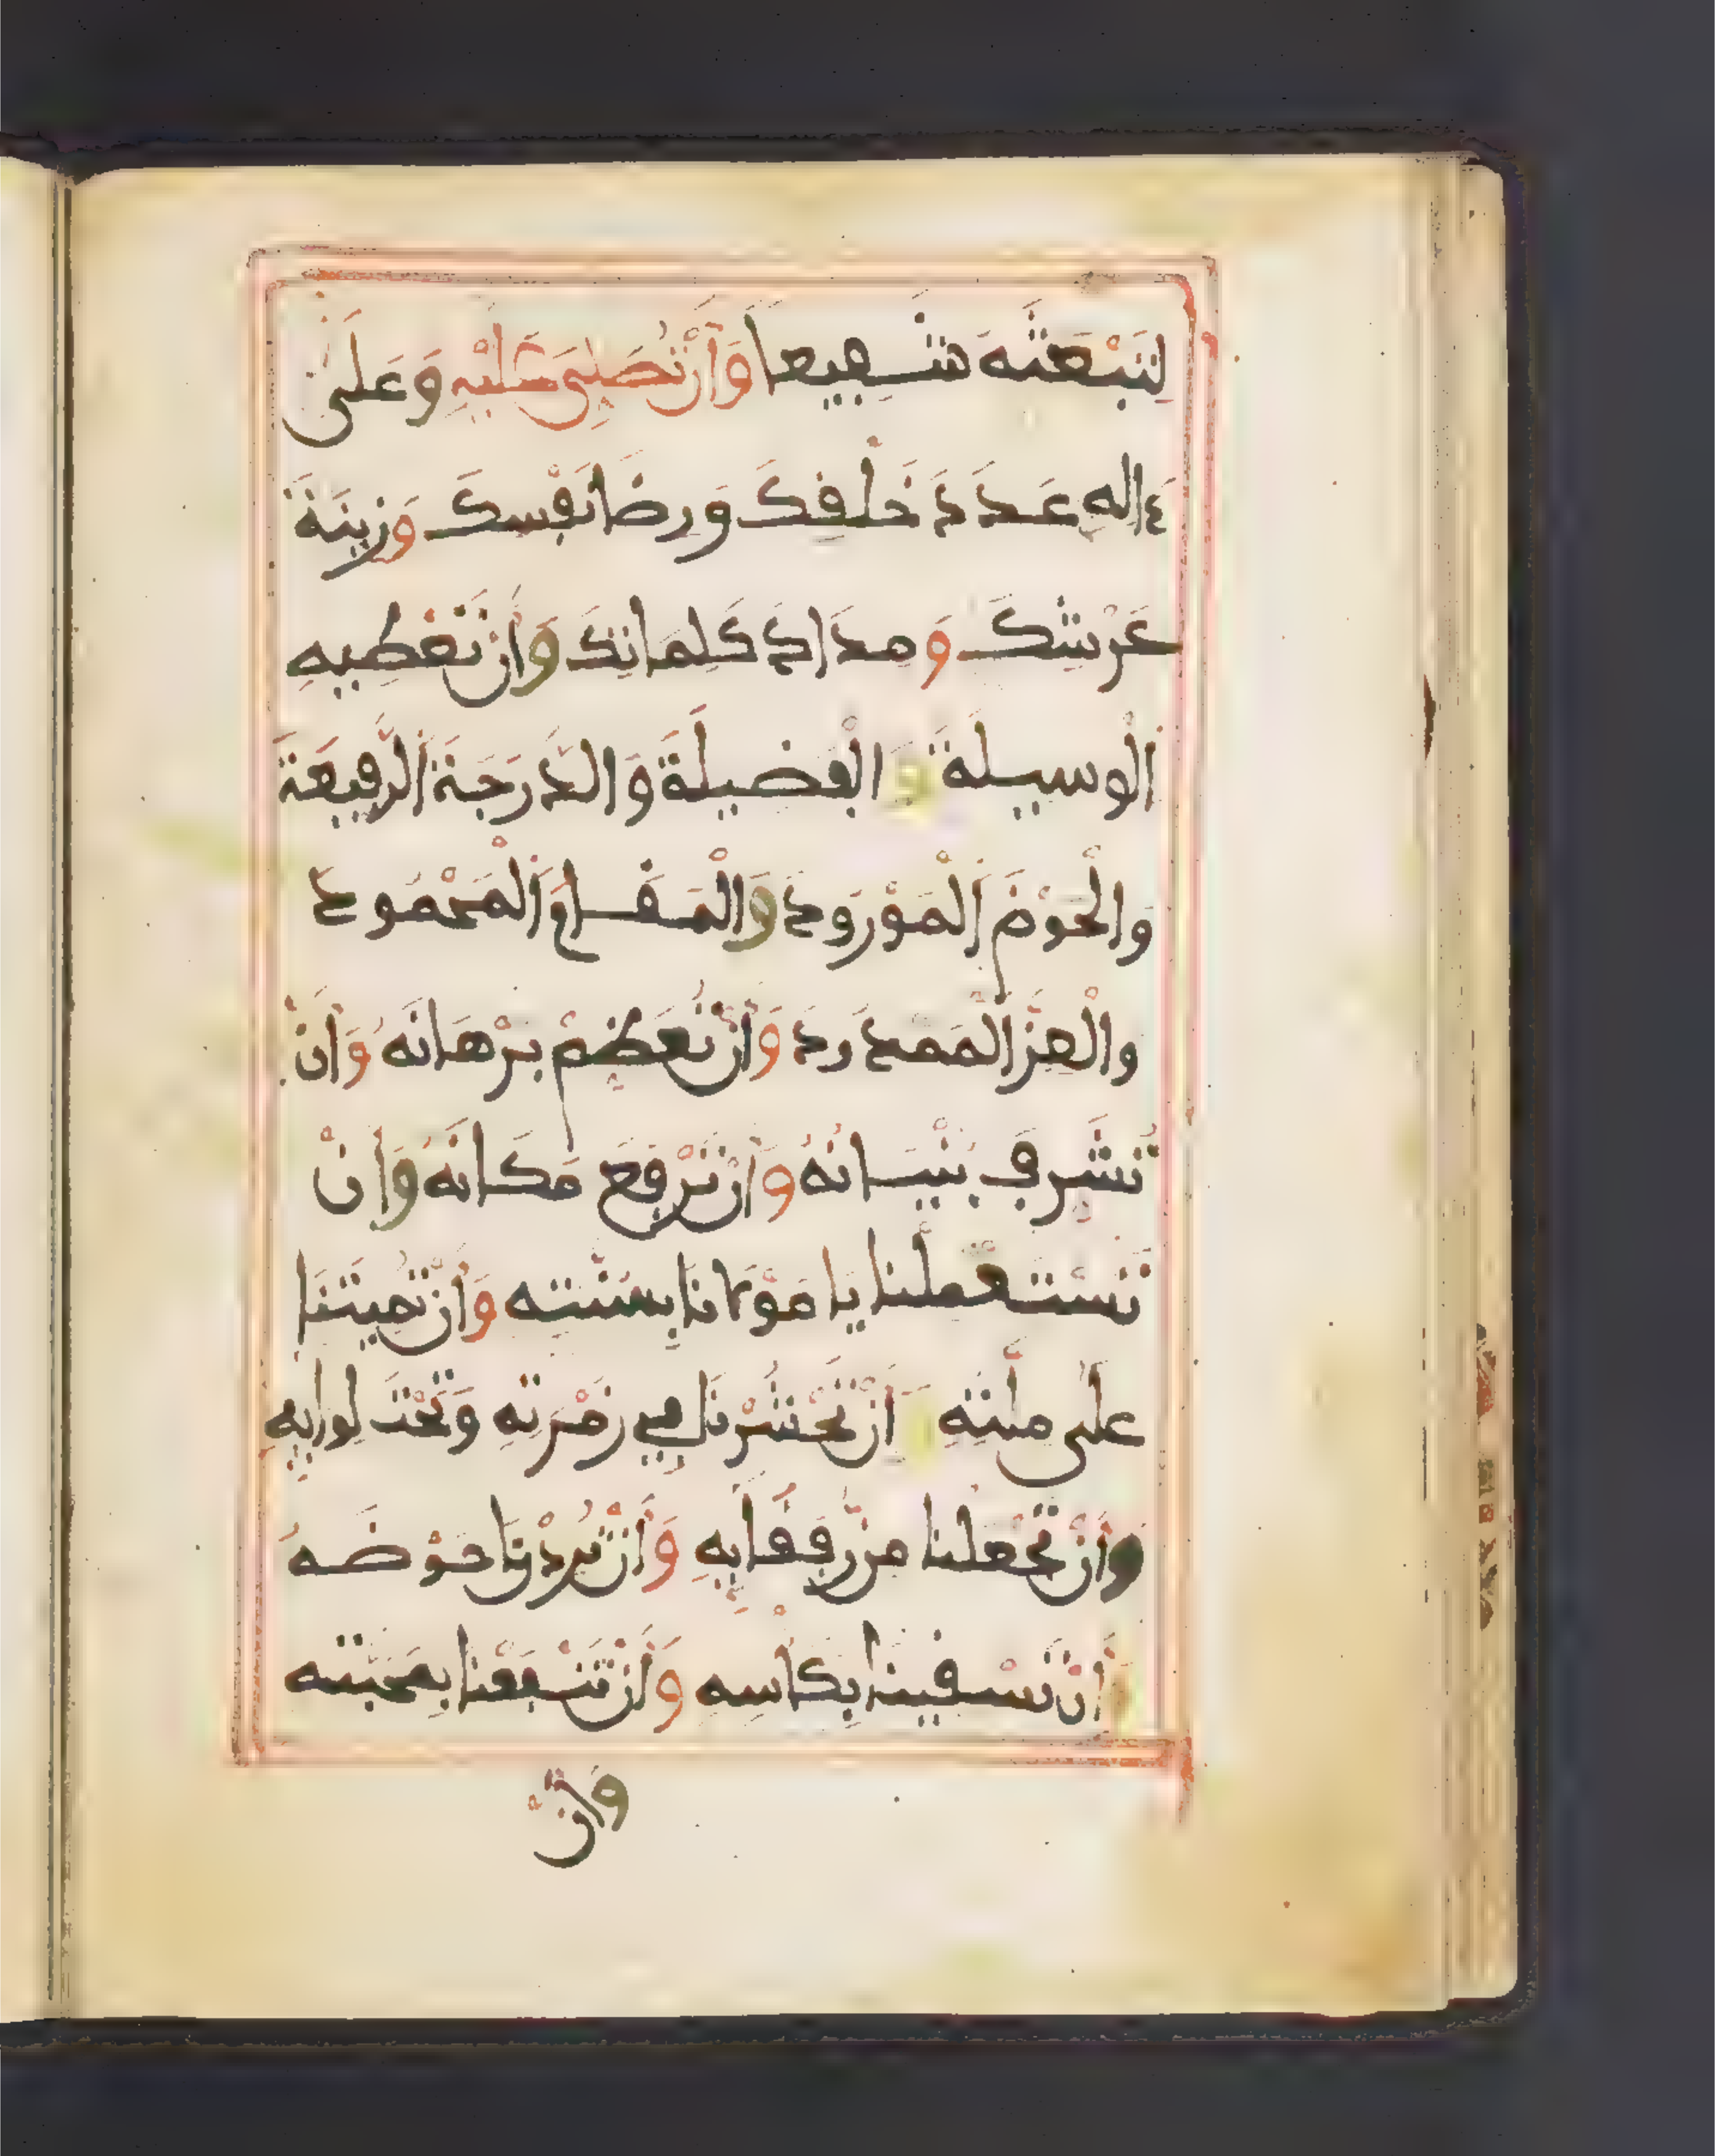 لِتَبْعَثَهُ شَفِيعًا وَأَنْ تُصَلِّيَ عَلَيْهِ وَعَلَى
ءَالِهِ عَدَدَ خَلْقِكَ وَرِضَا نَفْسِكَ وَزِينَةَ
عَرْشِكَ وَمِدَادَ كَلِمَاتِكَ وَأَنْ تُعْطِيَهِ
الْوَسِيلَةَ وَالْفَضِيلَةَ وَالدَّرَجَةَ الرَّفِيعَةَ
وَالْحَوْضَ الْمَوْرُودَ وَالْمَقَامَ الْمَحْمُودَ
وَالْعِزَّ الْمَمْدُودَ وَأَنْ تُعَظِّمَ بُرْهَانَهُ وَأَنْ
تُشَرِّفَ بُنْيَانَهُ وَأَنْ تَرْفَعَ مَكَانَهُ وَأَنْ
تَسْتَعْمِلَنَا يَا مَوْلَانَا بِسُنَّتِهِ وَأَنْ تُمِيتَنَا
عَلَى مِلَّتِهِ أَنْ تَحْشُرَنَا فِي زُمْرَتِهِ وَتَحْتَ لِوَايِهِ
وَأَنْ تَجْعَلَنَا مِنْ رُفَقَايِهِ وَأَنْ تُورِدَنَا حَوْضَهُ
وَأَنْ تَسْقِيَنَا بِكَأْسِهِ وَأَنْ تَنْفَعَنَا بِمَحَبَّتِهِ
وَأَنْ